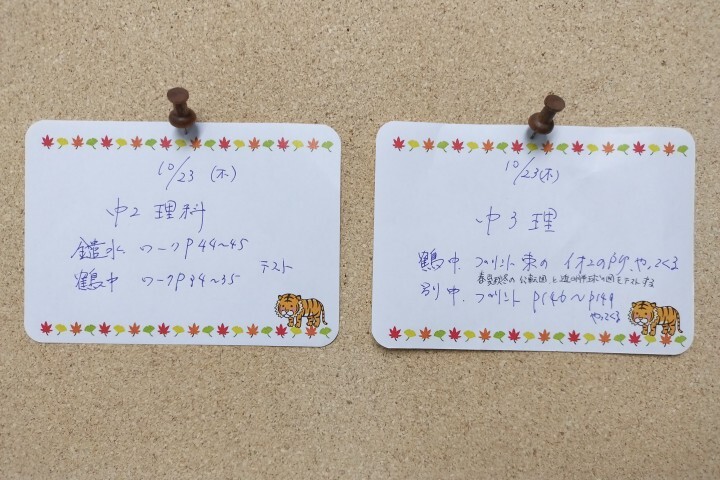 10/23 (木)
中2 理科
鑓水 ワークP44~45
鶴中 ワークP34~35
テスト
10/23(木)
中3 理
鶴中 プリント束の イオンのP9、やってくる
春夏秋冬の公転図と透明半球の図をテストする
別中 プリント P146~P149
やってくる